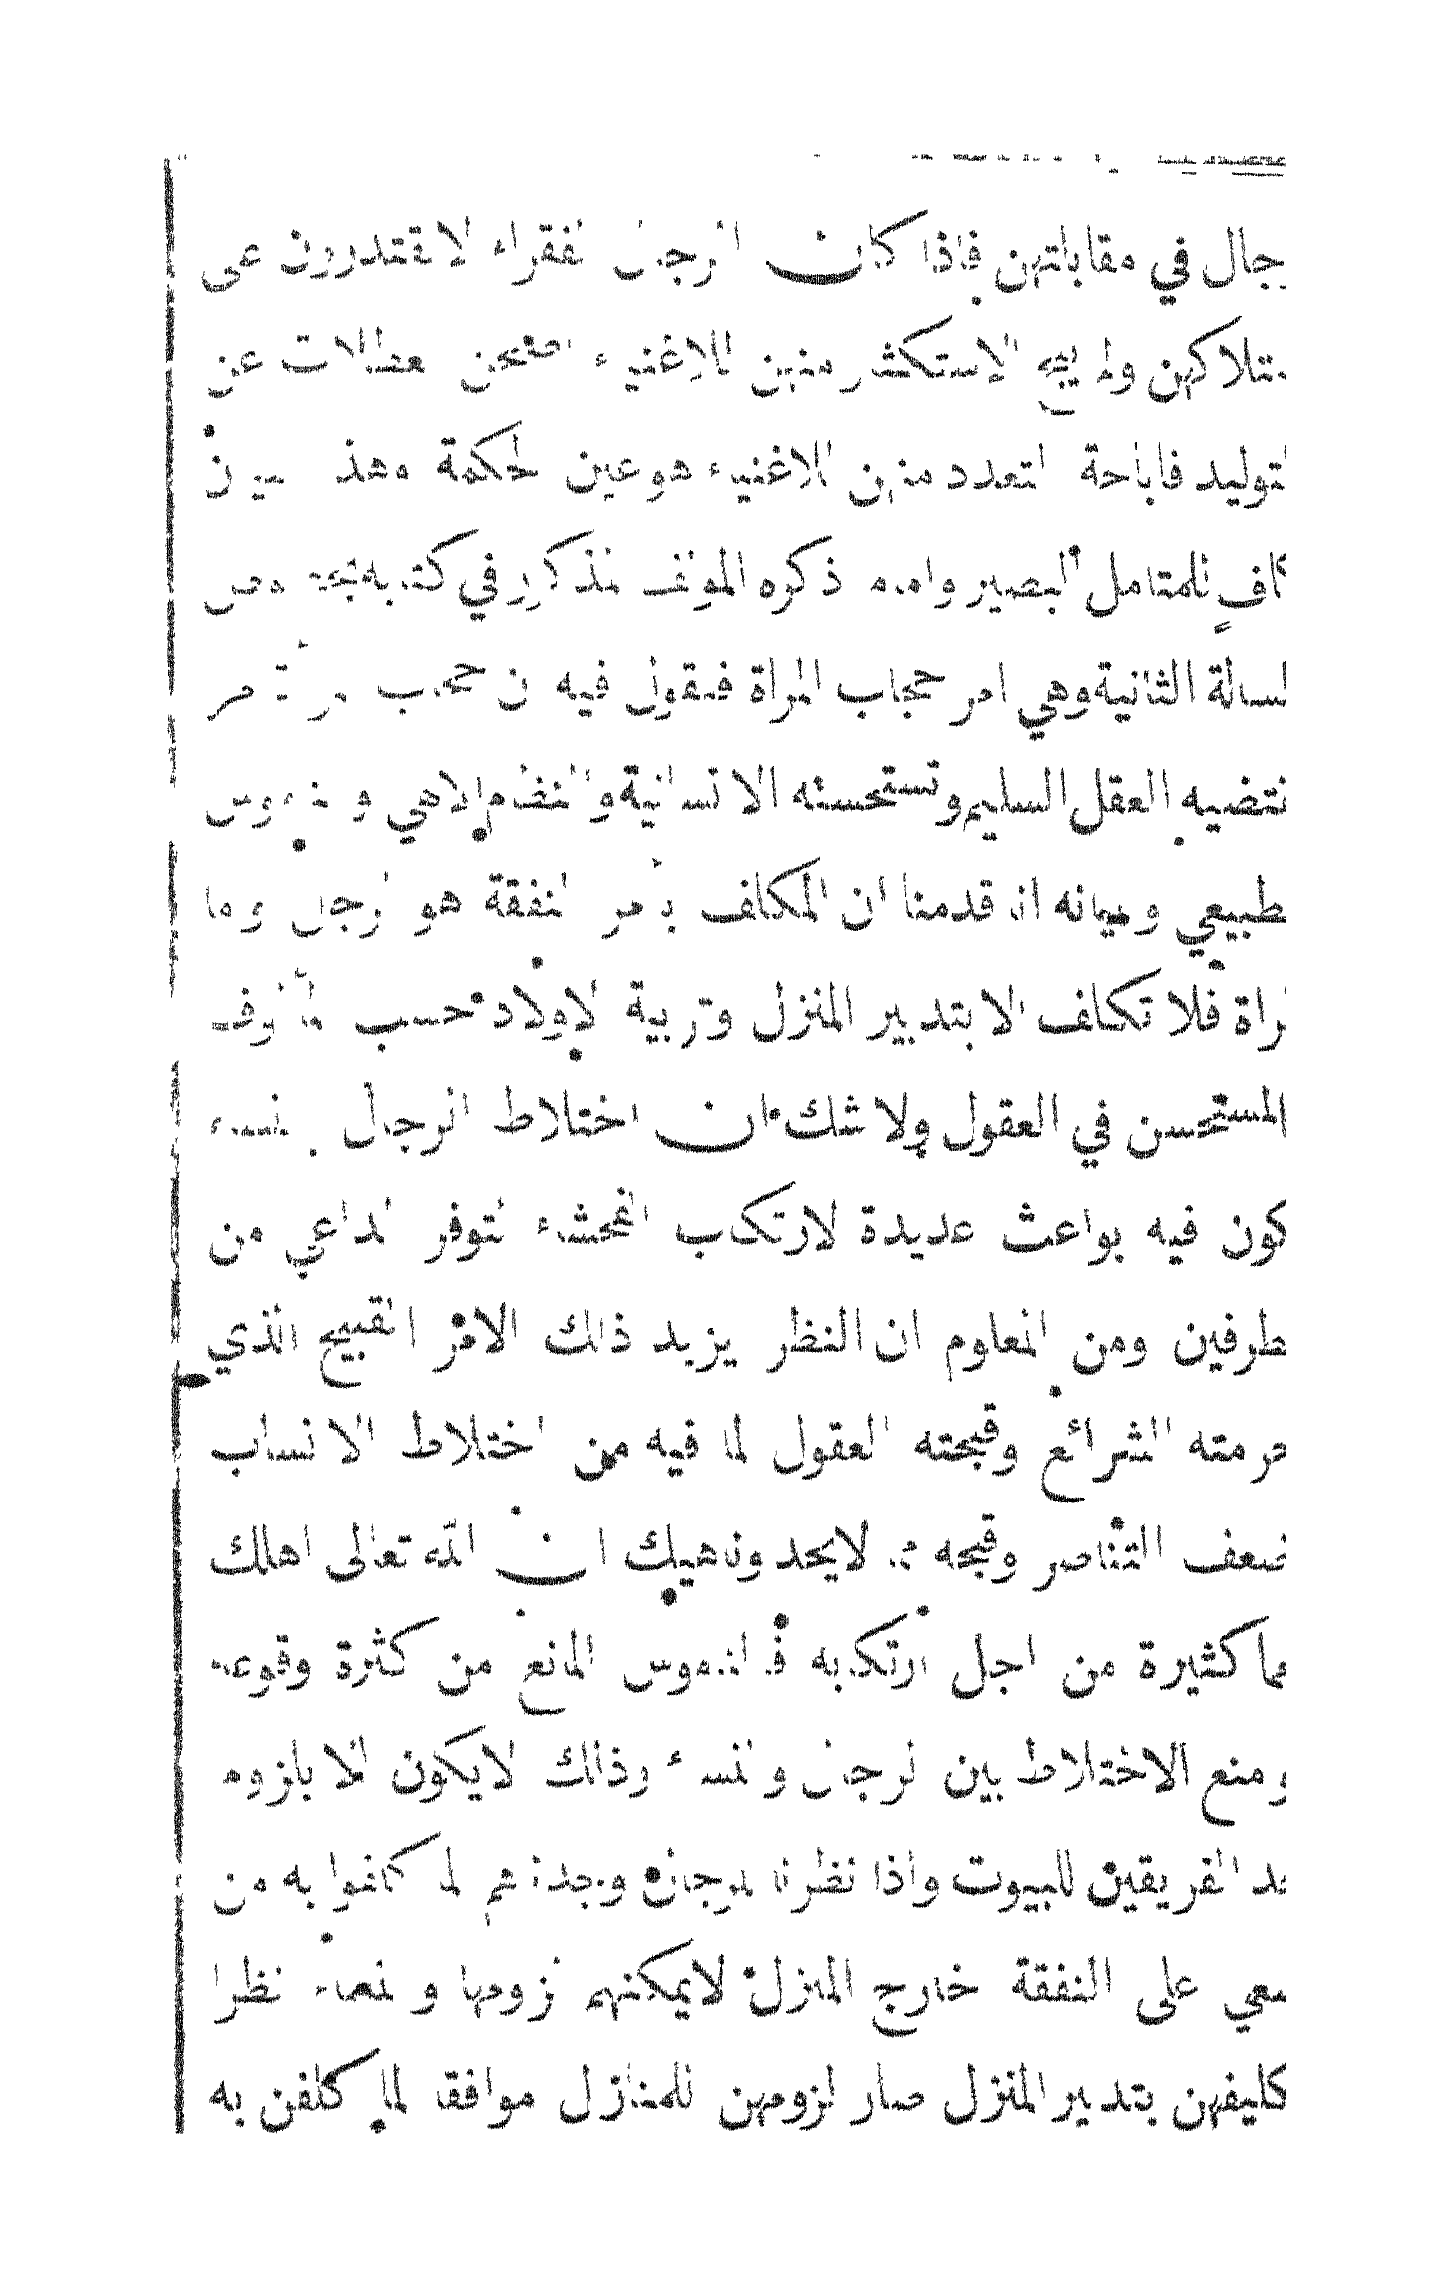 جال في مقاباتهن فاذا كان الرجال الفقراء لا يقتدرون على
متلاكهن ولم يبح الاستكثار منهن للاغنياء اصبحن معطلات عن
لتوليد فاباحة التعدد منهن للاغنياء هو عين الحكمة وهذا
كافٍ للمتامل البصير واما ما ذكره المؤلف المذكور في كتابه
لسالة الثانية وهي امر حجاب المراة فنقول فيه ان حجاب المرأة امر
نتضيه العقل السليم وتستحسنه الانسانية والنظام الالاهي والناموس
طبيعي وبيانه اننا قدمنا ان المكلف بأمر النفقة هو الرجل واما
لراة فلا تكلف الا بتدبير المنزل وتربية الاولاد حسب المألوف
المستحسن في العقول ولا شك ان اختلاط الرجال بالنساء
كون فيه بواعث عديدة لارتكاب الفحشاء لتوفر الداعي من
طرفين ومن المعلوم ان النظر يزيد ذلك الامر القبيح الذي
حرمته الشرائع وقبحته العقول لما فيه من اختلاط الانساب
ضعف التناصر وقبحه مما لا يجحد وناهيك ان الله تعالى اهلك
مما كثيرة من اجل ارتكابه فالناموس المانع من كثرة وقوعه
ومنع الاختلاط بين الرجال والنساء وذلك لا يكون الا بلزوم
حد الفريقين للبيوت واذا نظرنا للرجال وجدناهم لما كلفوا به من
سعي على النفقة خارج المنزل لا يمكنهم لزومها والنساء نظرا
كليفهن بتدبير المنزل صار لزومهن للمنازل موافقا لما كلفن به